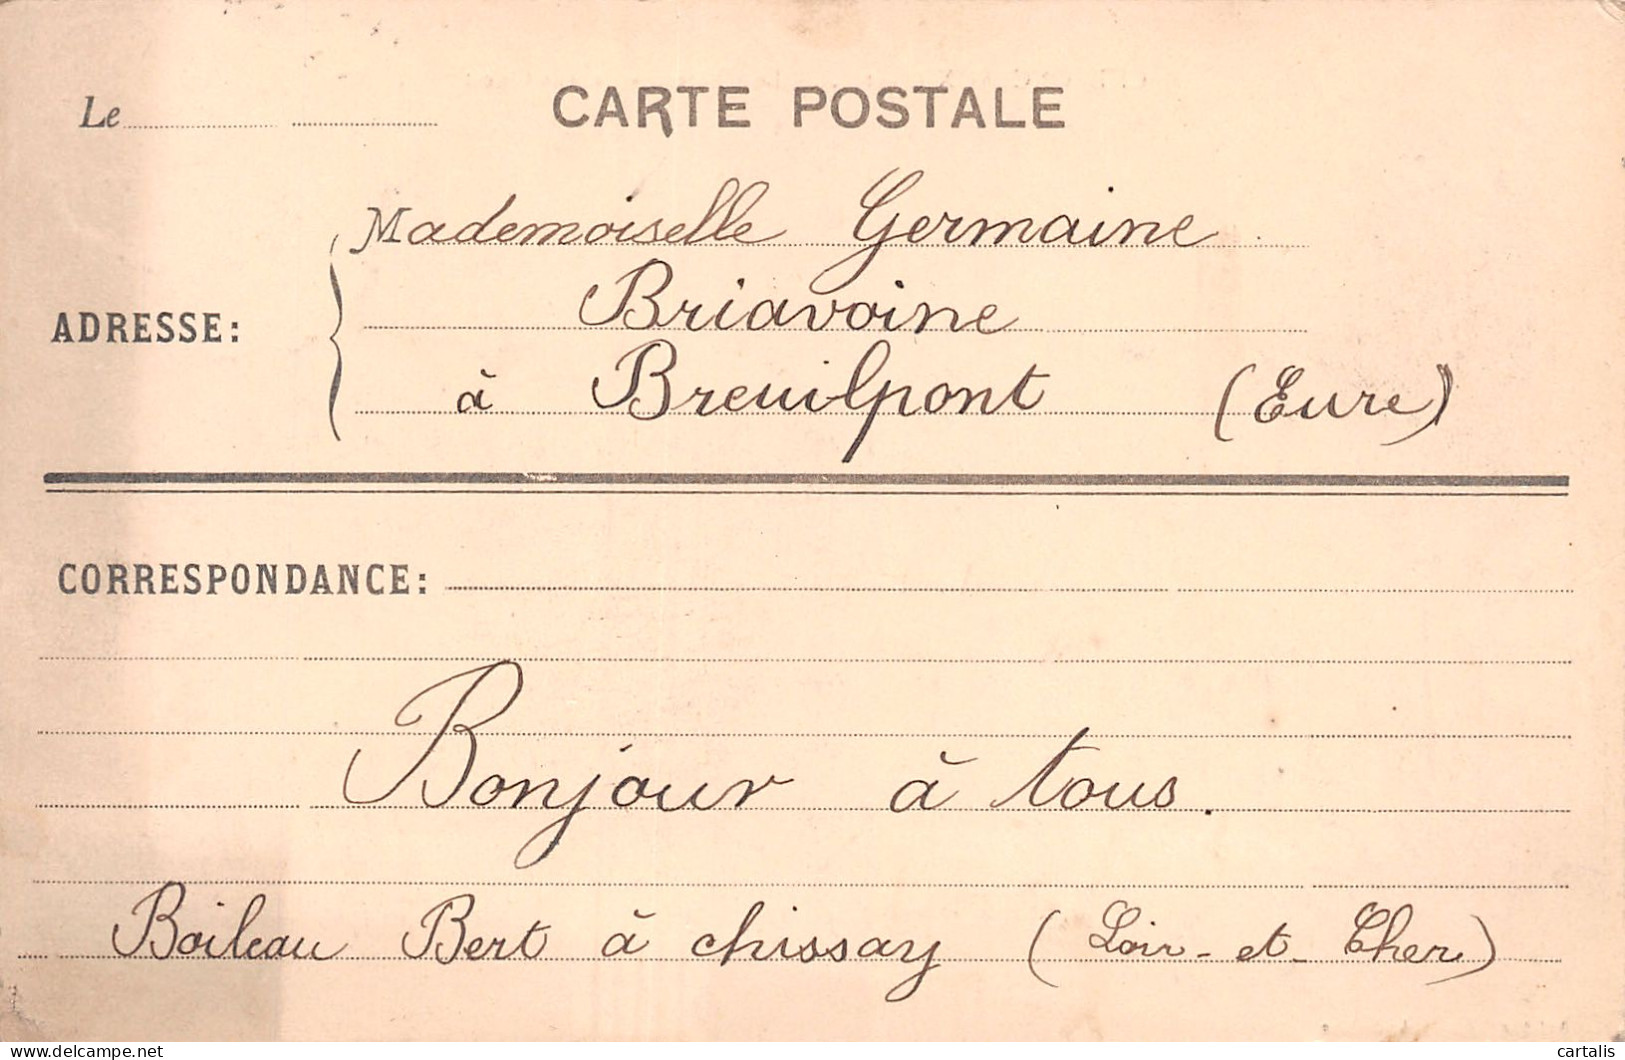 Le
CARTE POSTALE
Mademoiselle Germaine
Briavoine
ADRESSE:
à Breuilpont (Eure)
CORRESPONDANCE:
Bonjour à tous.
Boileau Bert à chissay (Loir-et-Cher)
delcampe.net
cartalis